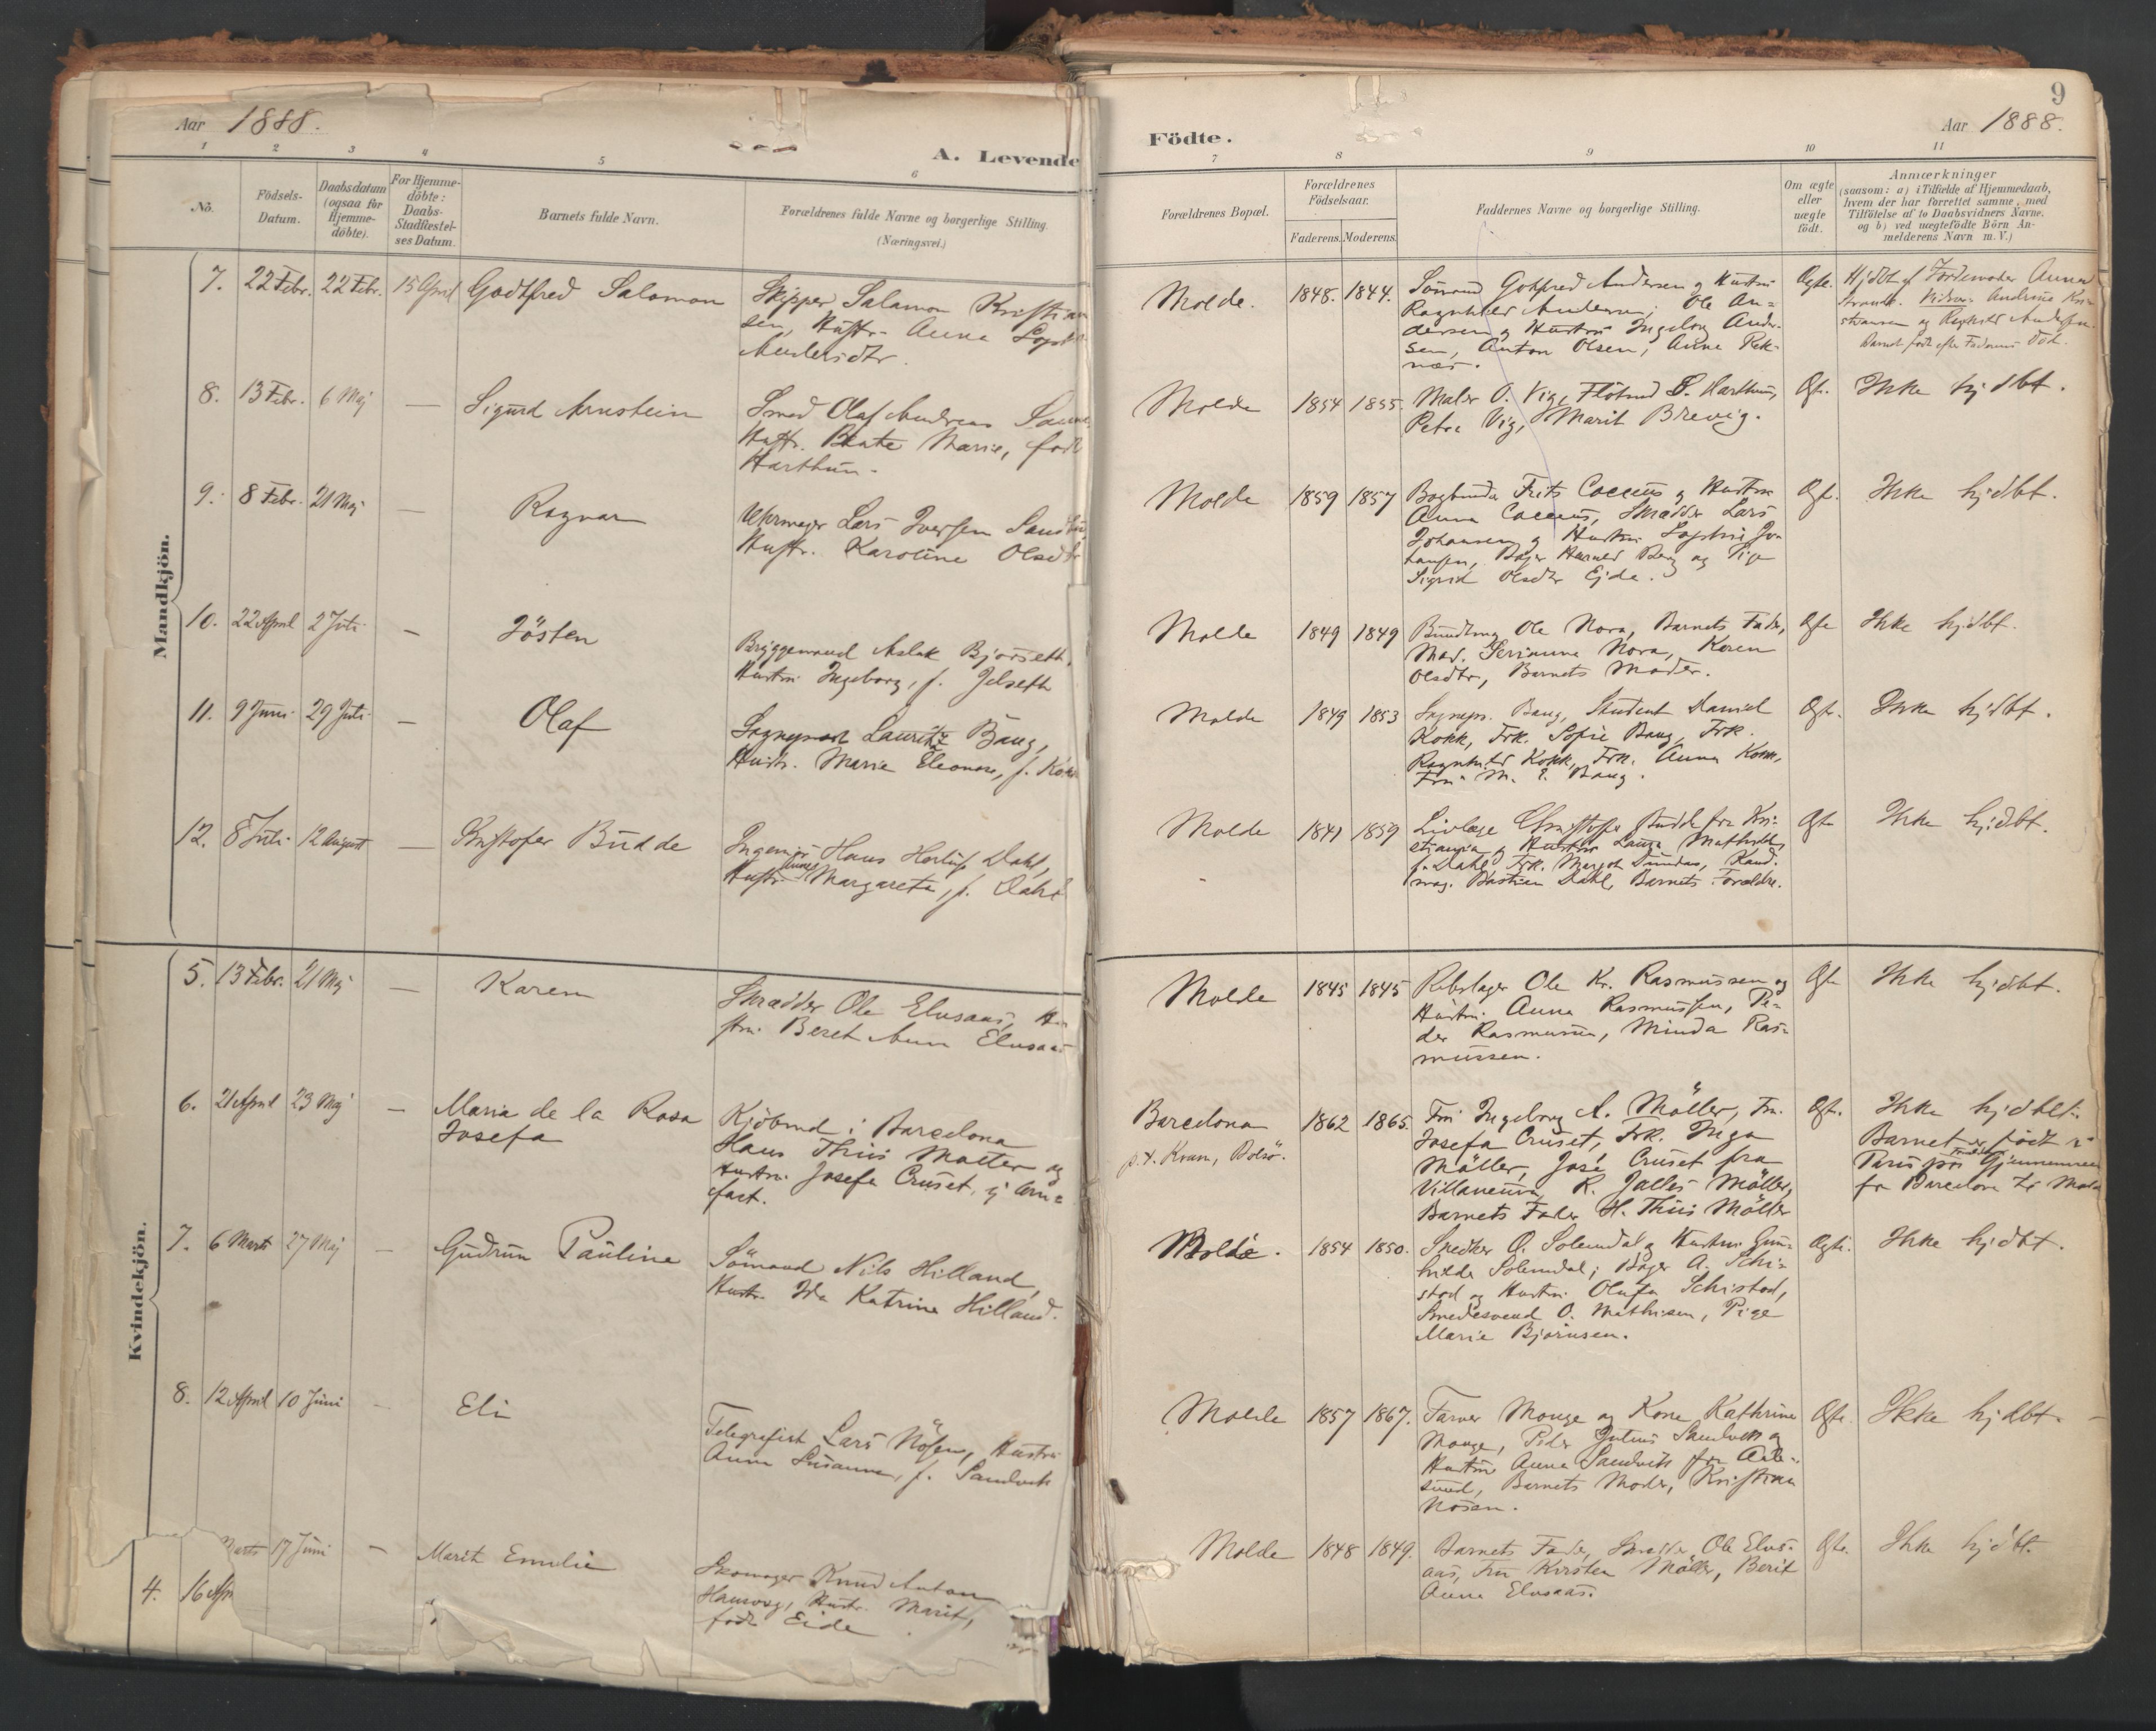 Aar 1888.
A. Levende
Födte.
9
Aar 1888.
1 2 3 4 5 6 7 8 9 10 11
Nô.
Födsels-
Datum.
Daabsdatum
(ogsaa for
Hjemme-
döbte).
For Hjemme-
döbte:
Daabs-
Stadfæstel-
ses Datum.
Barnets fulde Navn.
Forældrenes fulde Navne og borgerlige Stilling.
(Næringsvei.)
Forældrenes Bopæl.
Forældrenes
Födselsaar.
Faderens. Moderens.
Faddernes Navne og borgerlige Stilling.
Om ægte
eller
uægte
födt.
Anmærkninger
(saasom: a) i Tilfælde af Hjemmedaab,
hvem der har forrettet samme, med
Tilföielse af to Daabsvidners Navne.
og b) ved uægtefödte Börn An-
melderens Navn m. V.)
Mandkjön.
7. 22 Febr. 22 Febr. 15 April Godtfred Salomon
Skipper Salamon Kristian
sen, Hustr. Anna
Andersdtr.
Molde. 1848. 1844.
Sömand Gotfred Andersen og Hustru
Ragnhild Andersen, Ole An-
dersen og Hustru Ingeborg Ander-
sen, Anton Olsen, Anna Rek-
næs.
Ægte.
Hjdbt af Jordemoder Anna
Strand. Vidner: Andrine Kri-
stiansen og Ragnhild Andersen.
Barnet födt efter Faderens Död.
8. 13 Febr. 6 Maj — Sigurd Arnstein
Smed Olaf Andreas
Hustr. Beate Marie, född
Harthun.
Molde 1854 1855.
Maler O. Vig, Harthun,
Petra Vig, Marit Brevig.
Ægt.
Ikke hjdbt.
9. 8 Febr. 21 Maj — Ragnar
Uhrmager Lars Iversen
Hustr. Karoline Olsdtr
Molde 1859 1857
Bogbinder Frits Coccius og Hustru
Anna Coccius, Skrædder Lars
Johansen og Hustru Sophie Jo-
hansen, Bager Berg og Pige
Sigrid Olsdtr Ejde.
Ægt.
Ikke hjdbt.
10. 22 April 2 Juli — Jösten
Bryggemand Aslak Bjørseth,
Hustru Ingeborg, f. Jelseth
Molde 1849 1849
Ole Nora, Barnets Fader,
Mad. Serianna Nora, Karen
Olsdtr, Barnets Moder.
Ægte
Ikke hjdbt.
11. 9 Juni 29 Juli — Olaf
Sogneprest Lauritz Baug,
Hustr. Marie Eleonore, f. Kokk
Molde 1849 1853
Sognepr. Baug, Student Daniel
Kokk, Frk. Sofie Baug, Frk.
Ragnhild Kokk, Frk. Anna Kokk,
Fru M. E. Baug.
Ægt.
Ikke hjdbt.
12. 8 Juli 12 August — Kristofer Budde
Ingeniør Hans Herluf Dahl,
Hustr. Margarete, f. Dahl
Molde 1841 1859
Livlæge Christoffer Budde fra Kri-
stiania og Hustru Laura Mathilde
f. Dahl, Frk. Margot Dundas, Kand.
mag. Bastian Dahl, Barnets Forældre.
Ægt.
Ikke hjdbt.
Kvindekjön.
5. 13 Febr. 21 Maj — Karen
Skrædder Ole Elusaas, Hu-
stru Beret Anna Elusaas
Molde 1845 1845
Rebslager Ole Kr. Rasmussen og
Hustru Anna Rasmussen, Pe-
der Rasmussen, Minda Ras-
mussen.
Ægte
Ikke hjdbt.
6. 21 April 23 Maj — Maria de la Rosa
Josefa
Kjöbmd i Barcelona
Hans Thiis Møller og
Hustru Josefa Cruset,
Barcelona
p.t. Kvam, Bolsø.
1862 1865.
Fru Ingeborg A. Möller, Fru
Josefa Cruset, Frk. Inga
Möller, José Cruset fra
Villaneuva, R. Jalles Möller,
Barnets Fader H. Thiis Möller
Ægt.
Ikke hjdbt.
Barnet er födt i
Paris på Gjennemreise
fr Barcelona til Molde
7. 6 Marts 27 Maj — Gudrun Pauline
Sömand Nils Hilland,
Hustr. Ida Katrine Hilland.
Molde. 1854 1850.
Snedker O. Solemdal og Hustru Gun-
hilde Solemdal, Bager A. Schi-
stad og Hustru Olufa Schistad,
Smedesvend O. Mathisen, Pige
Marie Bjørnsen.
Ægte.
Ikke hjdbt.
8. 12 April 10 Juni — Eli
Telegrafist Lars Nösen, Hustru
Anna Susanna, f. Sandvik
Molde 1857 1867.
Farver Monge og Kone Kathrine
Monge, Peder Julius Sandvik og
Hustru Anna Sandvik fra Aale-
sund, Barnets Moder, Kristiana
Nösen.
Ægte.
Ikke hjdbt. —
Marts 17 Juni — Marit Emilie
Skomager Knud Anton
Hansvog, Hustr. Marit,
född Eide
Molde 1848 1849.
Barnets Fader, Skrædder Ole Elus-
aas, Fru Kirsten Möller, Berit
Anna Elusaas.
Ægte.
Ikke hjdbt.
4. 16 Apr